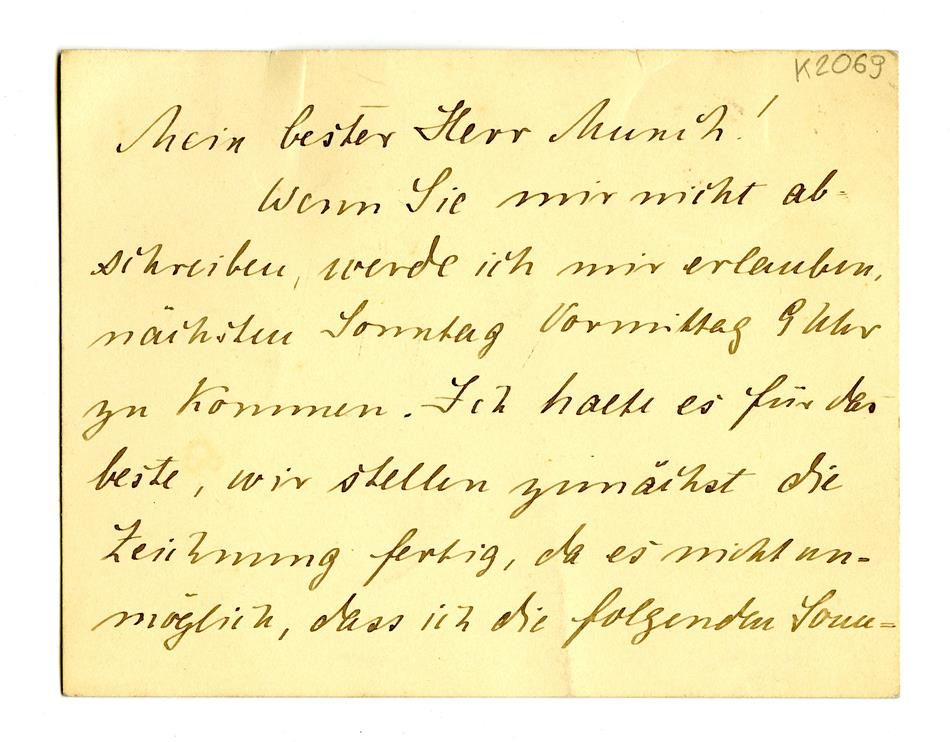 K2069
Mein bester Herr Munch!
Wenn Sie mir nicht ab-
schreiben, werde ich mir erlauben,
nächsten Sonntag Vormittag 9 Uhr
zu kommen. Ich halte es für das
beste, wir stellen zunächst die
Zeichnung fertig, da es nicht un-
möglich, dass ich die folgenden Sonn=